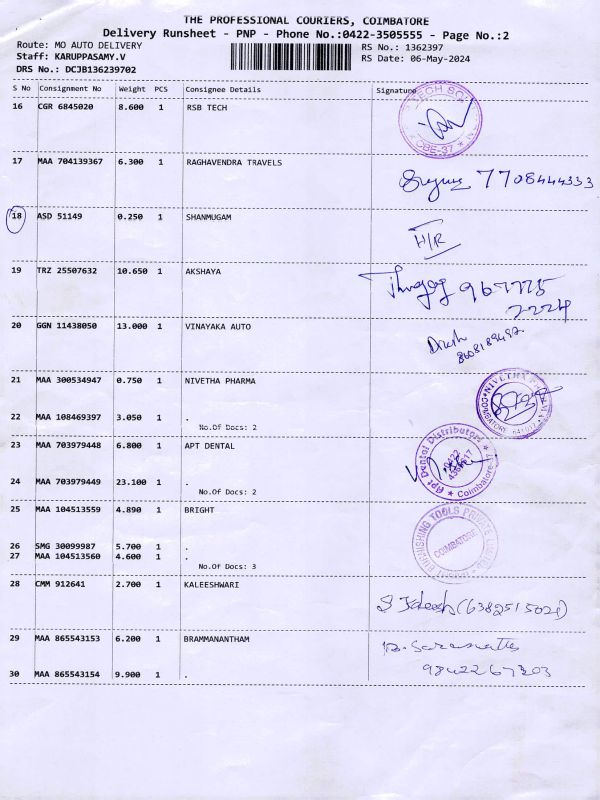 THE PROFESSIONAL COURIERS, COIMBATORE
Delivery Runsheet - PNP - Phone No.:0422-3505555 - Page No.:2
Route: MO AUTO DELIVERY RS No.: 1362397
Staff: KARUPPASAMY.V RS Date: 06-May-2024
DRS No.: DCJB136239702
S No Consignment No Weight PCS Consignee Details Signature
16 CGR 6845020 8.600 1 RSB TECH
CBE-37
17 MAA 704139367 6.300 1 RAGHAVENDRA TRAVELS
7708444333
18 ASD 51149 0.250 1 SHANMUGAM
H/R
19 TRZ 25507632 10.650 1 AKSHAYA
20 GGN 11438050 13.000 1 VINAYAKA AUTO
21 MAA 300534947 0.750 1 NIVETHA PHARMA
NIVETHA PHARMA
COIMBATORE
22 MAA 108469397 3.050 1 .
No.Of Docs: 2
23 MAA 703979448 6.800 1 APT DENTAL
Apt Dental Distributors
Coimbatore
24 MAA 703979449 23.100 1 .
No.Of Docs: 2
25 MAA 104513559 4.890 1 BRIGHT
FINISHING TOOLS PRIVATE LIMITED
COIMBATORE
26 SMG 30099987 5.700 1 .
27 MAA 104513560 4.600 1 .
No.Of Docs: 3
28 CMM 912641 2.700 1 KALEESHWARI
29 MAA 865543153 6.200 1 BRAMMANANTHAM
30 MAA 865543154 9.900 1 .